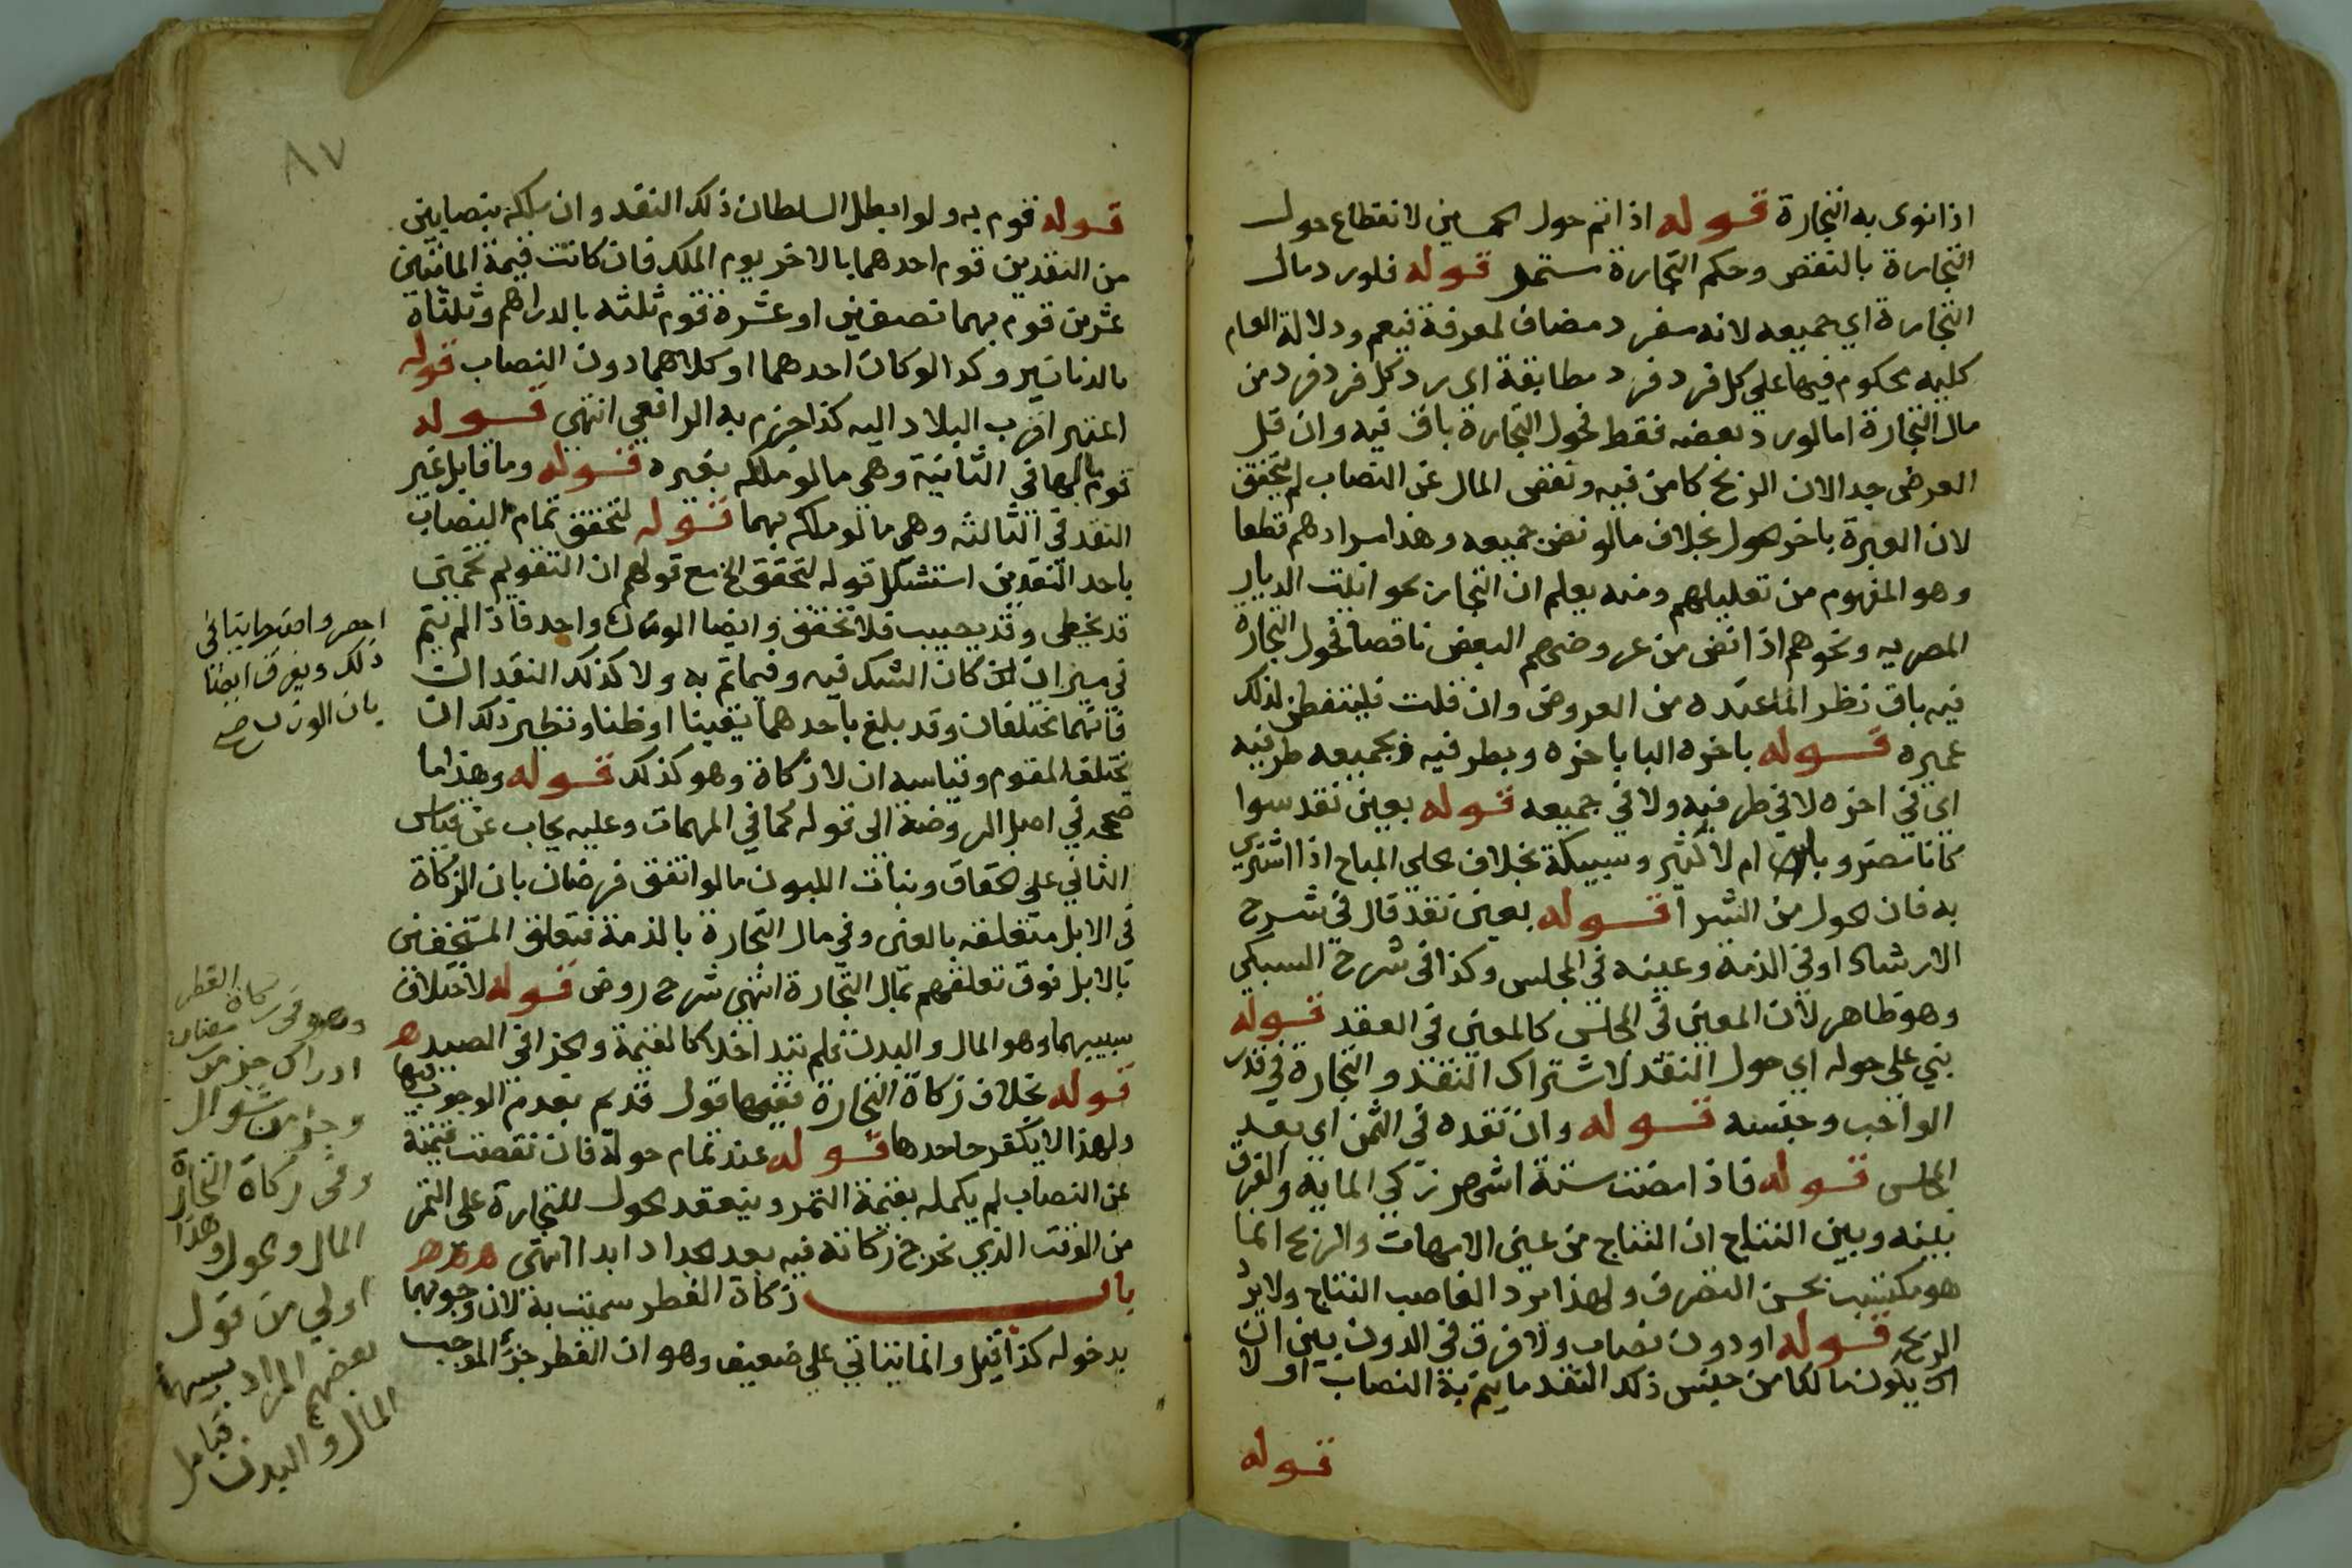 اذا نوى به التجارة قوله اذا تم حول الخمسين لانقطاع حول
التجارة بالنقص وحكم التجارة مستمر قوله فلو رد مال
التجارة اي جميعه لانه مفرد مضاف لمعرفة فيعم ودلالة العام
كليه محكوم فيها على كل فرد فرد مطابقة اى رد كل فرد فرد من
مال التجارة اما لو رد بعضه فقط فحول التجارة باق فيه وان قل
العرض جدا لان الربح كامن فيه ونقص المال عن النصاب لم يتحقق
لان العبرة باخر الحول بخلاف ما لو نض جميعه وهذا مرادهم قطعا
وهو المفهوم من تعليلهم ومنه يعلم ان التجار نحو الديار
المصريه ونحوهم اذا نض من عروضهم البعض ناقصا فحول التجارة
فيه باق نظر الما عنده من العروض وان قلت فليتفطن لذلك
عميره قوله باخره البا باخره وبطرفيه وبجميعه ظرفيه
اى في اخره لا في طرفيه ولا في جميعه قوله بعين نقد سوا
كانا مضروبا ام لا كتبر وسبيكة بخلاف حلى المباح اذا اشترى
به فان الحول من الشرا قوله بعين نقد قال في شرح
الارشاد او في الذمة وعينه في المجلس وكذا في شرح السبكي
وهو ظاهر لان المعين في المجلس كالمعين في العقد قوله
بني على حوله اي حول النقد لاشتراك النقد والتجارة في قدر
الواجب وجنسه قوله وان نقده في الثمن اي بعد
المجلس قوله فاذا مضت ستة اشهر زكي المايه والفرق
بينه وبين النتاج ان النتاج من عين الامهات والربح انما
هو مكتسب بحسن التصرف ولهذا يرد الغاصب النتاج ولا يرد
الربح قوله او دون نصاب ولا فرق في الدون بين ان
يكون مالكا من جنس ذلك النقد ما يتم به النصاب او لا
قوله
٨٧
قوله قوم به ولو ابطل السلطان ذلك النقد وان ملكه بنصابين
من النقدين قوم احدهما بالاخر يوم الملك فان كانت قيمة المائتين
عشرين قوم بهما نصفين او عشرة قوم ثلثه بالدراهم وثلثاه
بالدنانير وكذا لو كان احدهما او كلاهما دون النصاب قوله
اعتبر اقرب البلاد اليه كذا جزم به الرافعي انتهى قوله
قوم بالها في الثانية وهي ما لو ملكه بغيره قوله وما قابل غير
النقد في الثالثه وهي ما لو ملكه بهما قوله لتحقق تمام النصاب
باحد النقدين استشكل قوله لتحقق الخ مع قولهم ان التقويم تخمين
قد يخطى وقد يصيب فلا تحقق وايضا الوزن واحد فاذا لم يتم
في ميزان كان الشك فيه وفيما تم به ولا كذلك النقدان
فانهما مختلفان وقد بلغ باحدهما يقينا او ظنا ونظير ذلك ان
يختلف المقوم وقياسه ان لا زكاة وهو كذلك قوله وهذا ما
صححه في اصل الروضة الى قوله كما في المهمات وعليه يجاب عن قياس
الثاني على الحقاق وبنات اللبون ما لو اتفق فرضان بان الزكاة
في الابل متعلقه بالعين وفي مال التجارة بالذمة فتعلق المستحقين
بالابل فوق تعلقهم بمال التجارة انتهى شرح روض قوله لاختلاف
سببيهما وهو المال والبدن فلم يتداخلا كالقيمة والجزا في الصيد ه
قوله بخلاف زكاة التجارة ففيها قول قديم بعدم الوجوب فيها
ولهذا لا يكفر جاحدها قوله عند تمام حوله فان نقصت قيمته
عن النصاب لم يكمله بقيمة الثمر وينعقد الحول للتجارة على الثمر
من الوقت الذي تخرج زكاته فيه بعد الجداد ابدا انتهى ه ه ه
باب زكاة الفطر سميت به لان وجوبها
بدخوله كذا قيل وانما يتاتي على ضعيف وهو ان الفطر جزؤ الموجب
ذلك ويفرق ايضا
بان الوزن صح
زكاة الفطر
ادراك جز من رمضان
وجز من شوال
وفى زكاة التجارة
المال والحول وهذا
اولى من قول
بعضهم المراد بسببهما
المال والبدن فتامل